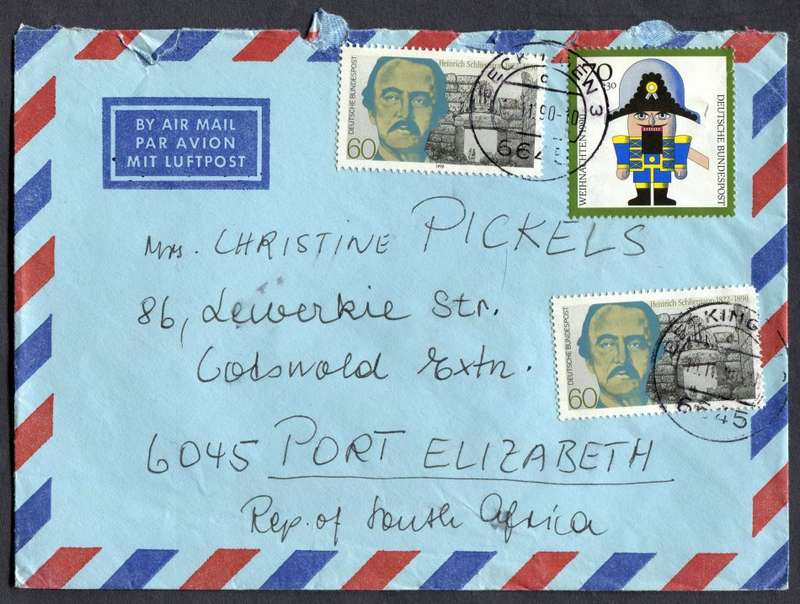 BY AIR MAIL
PAR AVION
MIT LUFTPOST
DEUTSCHE BUNDESPOST
Heinrich Schliemann
60
1990
70
+30
WEIHNACHTEN 1990
DEUTSCHE BUNDESPOST
Mrs. CHRISTINE PICKELS
86, Lewerkie Str.
Cotswold Extn.
6045 PORT ELIZABETH
Rep. of South Africa
Heinrich Schliemann 1822-1890
DEUTSCHE BUNDESPOST
60